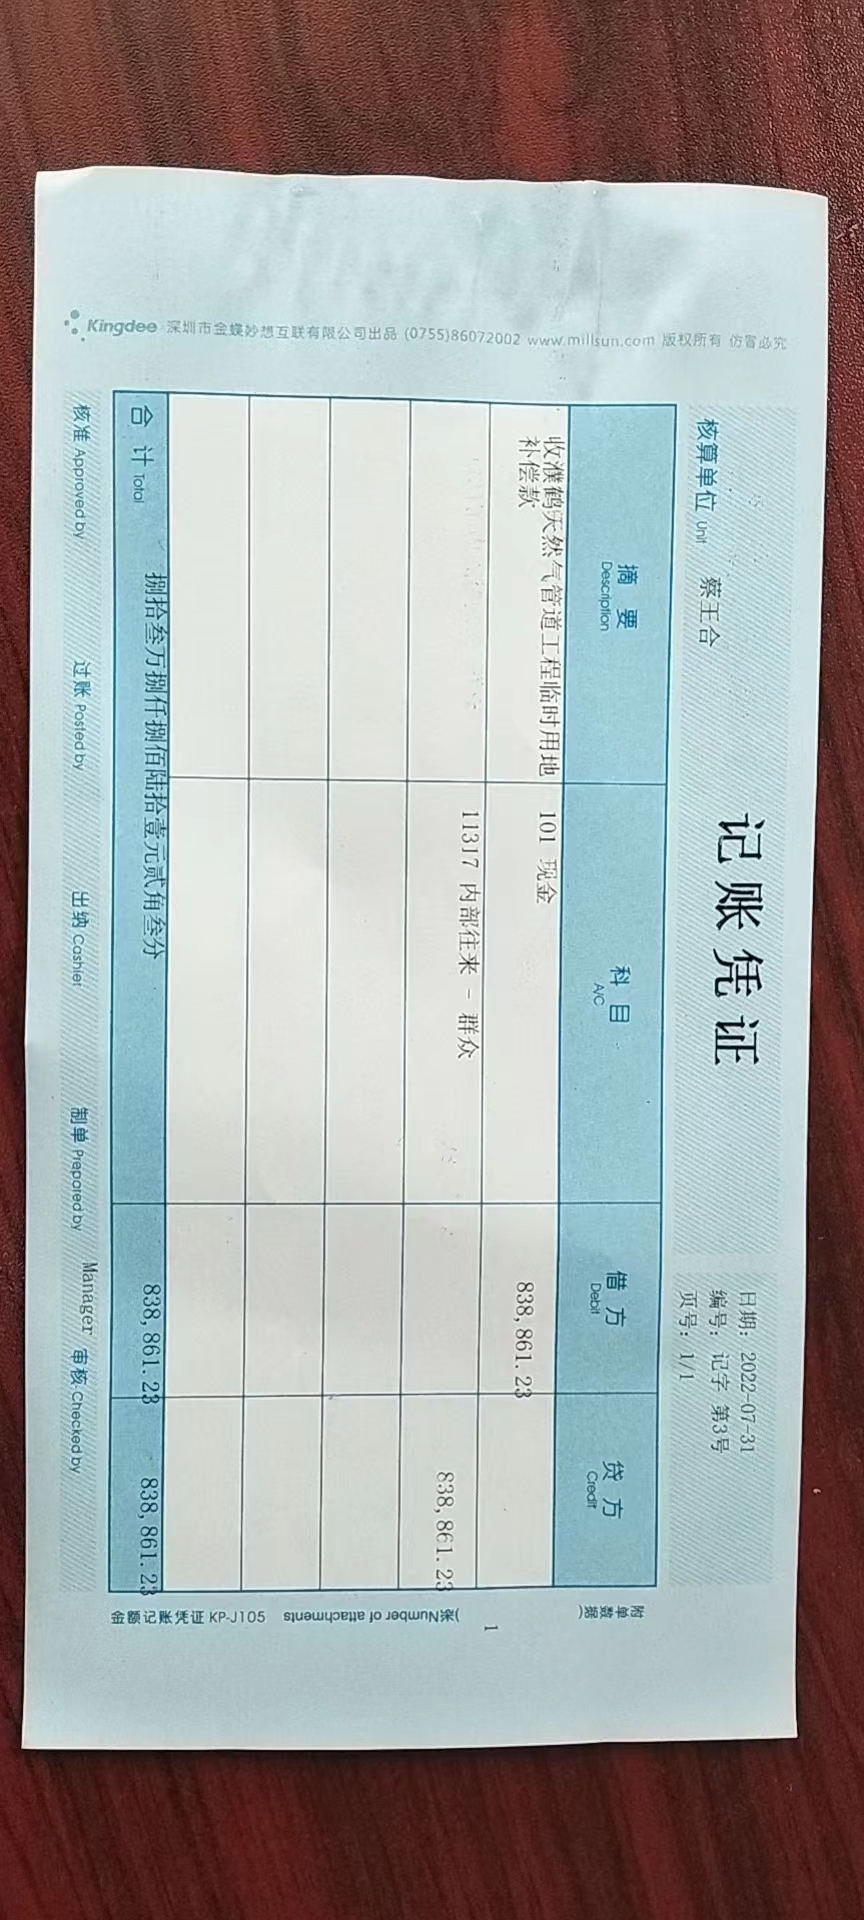 记账凭证
日期: 2022-07-31
编号: 记字 第3号
页号: 1/1
核算单位 Unit 蔡王合
摘要 Description 科目 A/C 借方 Debit 贷方 Credit
收濮鹤天然气管道工程临时用地补偿款 101 现金 838,861.23
11317 内部往来 - 群众 838,861.23
合计 Total 捌拾叁万捌仟捌佰陆拾壹元贰角叁分 838,861.23 838,861.23
核准 Approved by 过账 Posted by 出纳 Cashier 制单 Prepared by Manager 审核 Checked by
附单据数( 1 )张 Number of attachments
金额记账凭证 KP-J105
Kingdee 深圳市金蝶妙想互联有限公司出品 (0755)86072002 www.millsun.com 版权所有 仿冒必究